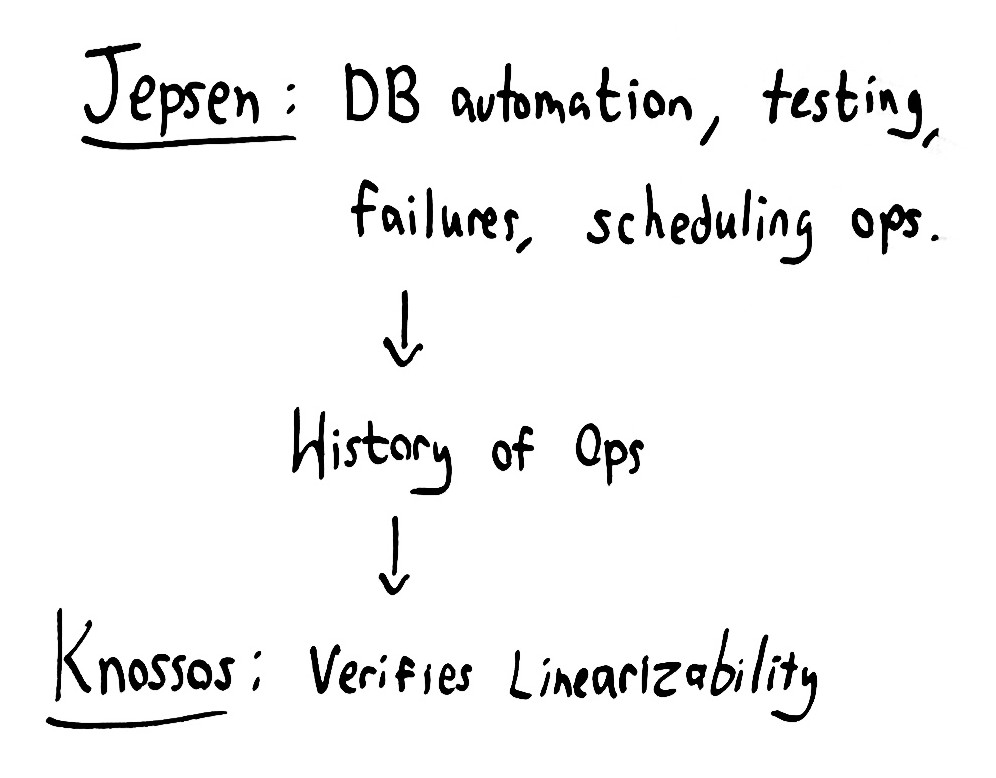 Jepsen: DB automation, testing,
failures, scheduling ops.
↓
History of Ops
↓
Knossos: Verifies Linearizability